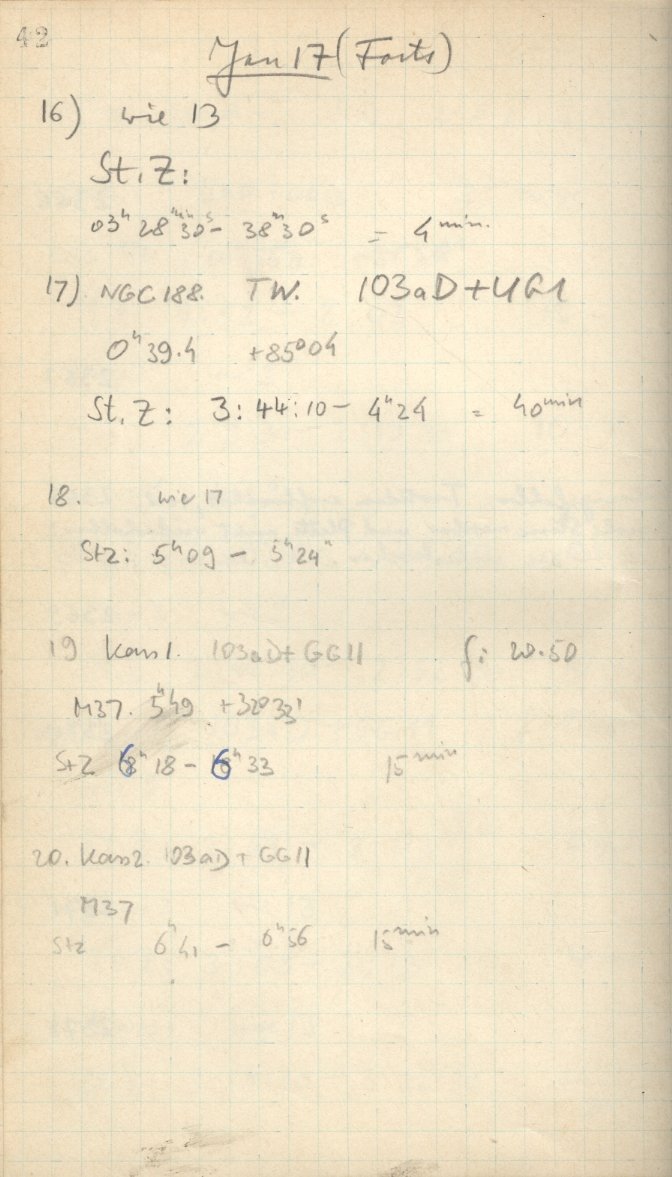 42
Jan 17 (Forts)
16) wie 13
St.Z:
03h 28m 30s - 38m 30s = 4 min.
17) NGC 188. TW. 103aD + UG1
0h 39.4 +85° 04
St.Z: 3:44:10 - 4h 24 = 40 min
18. wie 17
StZ: 5h 09 - 5h 24m
19 Kass 1. 103aD + GG11 f: 20.50
M37. 5h 49 +32° 33'
StZ 6h 18 - 6h 33 15 min
20. Kass 2. 103aD + GG11
M37
StZ 6h 41 - 6h 56 15 min